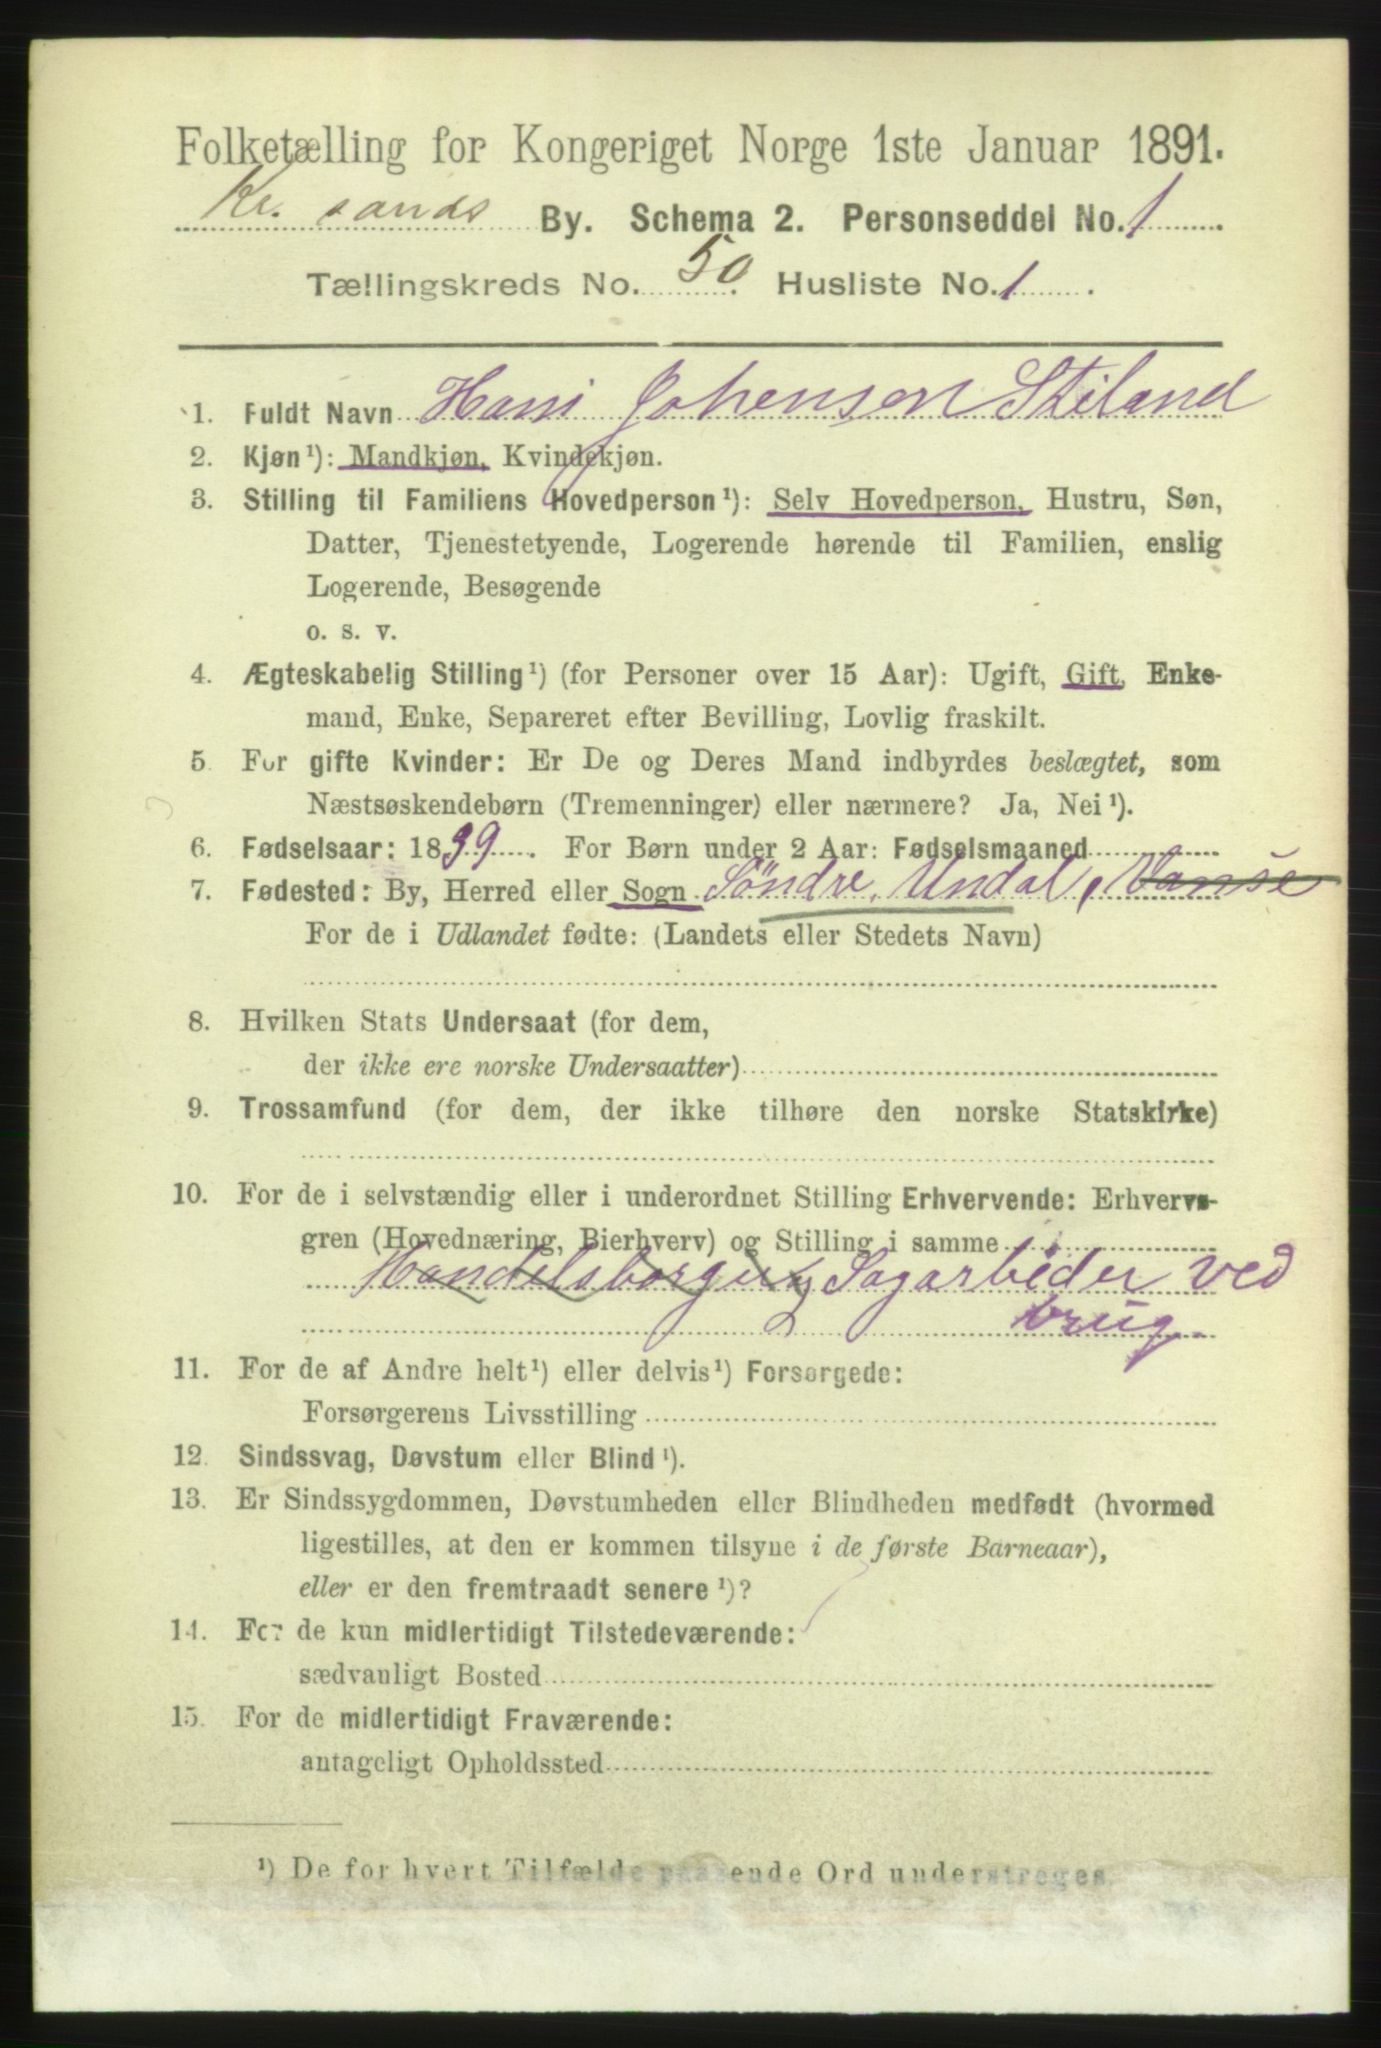 Folketælling for Kongeriget Norge 1ste Januar 1891.
Kr. sands By. Schema 2. Personseddel No. 1
Tællingskreds No. 50 Husliste No. 1
1. Fuldt Navn Hans Johensen Stiland
2. Kjøn¹): Mandkjøn, Kvindekjøn.
3. Stilling til Familiens Hovedperson¹): Selv Hovedperson, Hustru, Søn,
Datter, Tjenestetyende, Logerende hørende til Familien, enslig
Logerende, Besøgende
o. s. v.
4. Ægteskabelig Stilling¹) (for Personer over 15 Aar): Ugift, Gift, Enke-
mand, Enke, Separeret efter Bevilling, Lovlig fraskilt.
5. For gifte Kvinder: Er De og Deres Mand indbyrdes beslægtet, som
Næstsøskendebørn (Tremenninger) eller nærmere? Ja, Nei¹).
6. Fødselsaar: 1839. For Børn under 2 Aar: Fødselsmaaned
7. Fødested: By, Herred eller Sogn Söndre, Undal, Vanse
For de i Udlandet fødte: (Landets eller Stedets Navn)
8. Hvilken Stats Undersaat (for dem,
der ikke ere norske Undersaatter)
9. Trossamfund (for dem, der ikke tilhøre den norske Statskirke)
10. For de i selvstændig eller i underordnet Stilling Erhvervende: Erhvervs-
gren (Hovednæring, Bierhverv) og Stilling i samme
Handelsborger og Sagarbeider ved
brug.
11. For de af Andre helt¹) eller delvis¹) Forsørgede:
Forsørgerens Livsstilling
12. Sindssvag, Døvstum eller Blind¹).
13. Er Sindssygdommen, Døvstumheden eller Blindheden medfødt (hvormed
ligestilles, at den er kommen tilsyne i de første Barneaar),
eller er den fremtraadt senere¹)?
14. For de kun midlertidigt Tilstedeværende:
sædvanligt Bosted
15. For de midlertidigt Fraværende:
antageligt Opholdssted
¹) De for hvert Tilfælde passende Ord understreges.